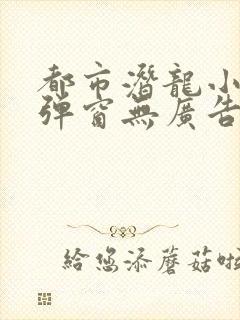 都市潛龍小
彈窗無廣告
給您添蘑菇啦